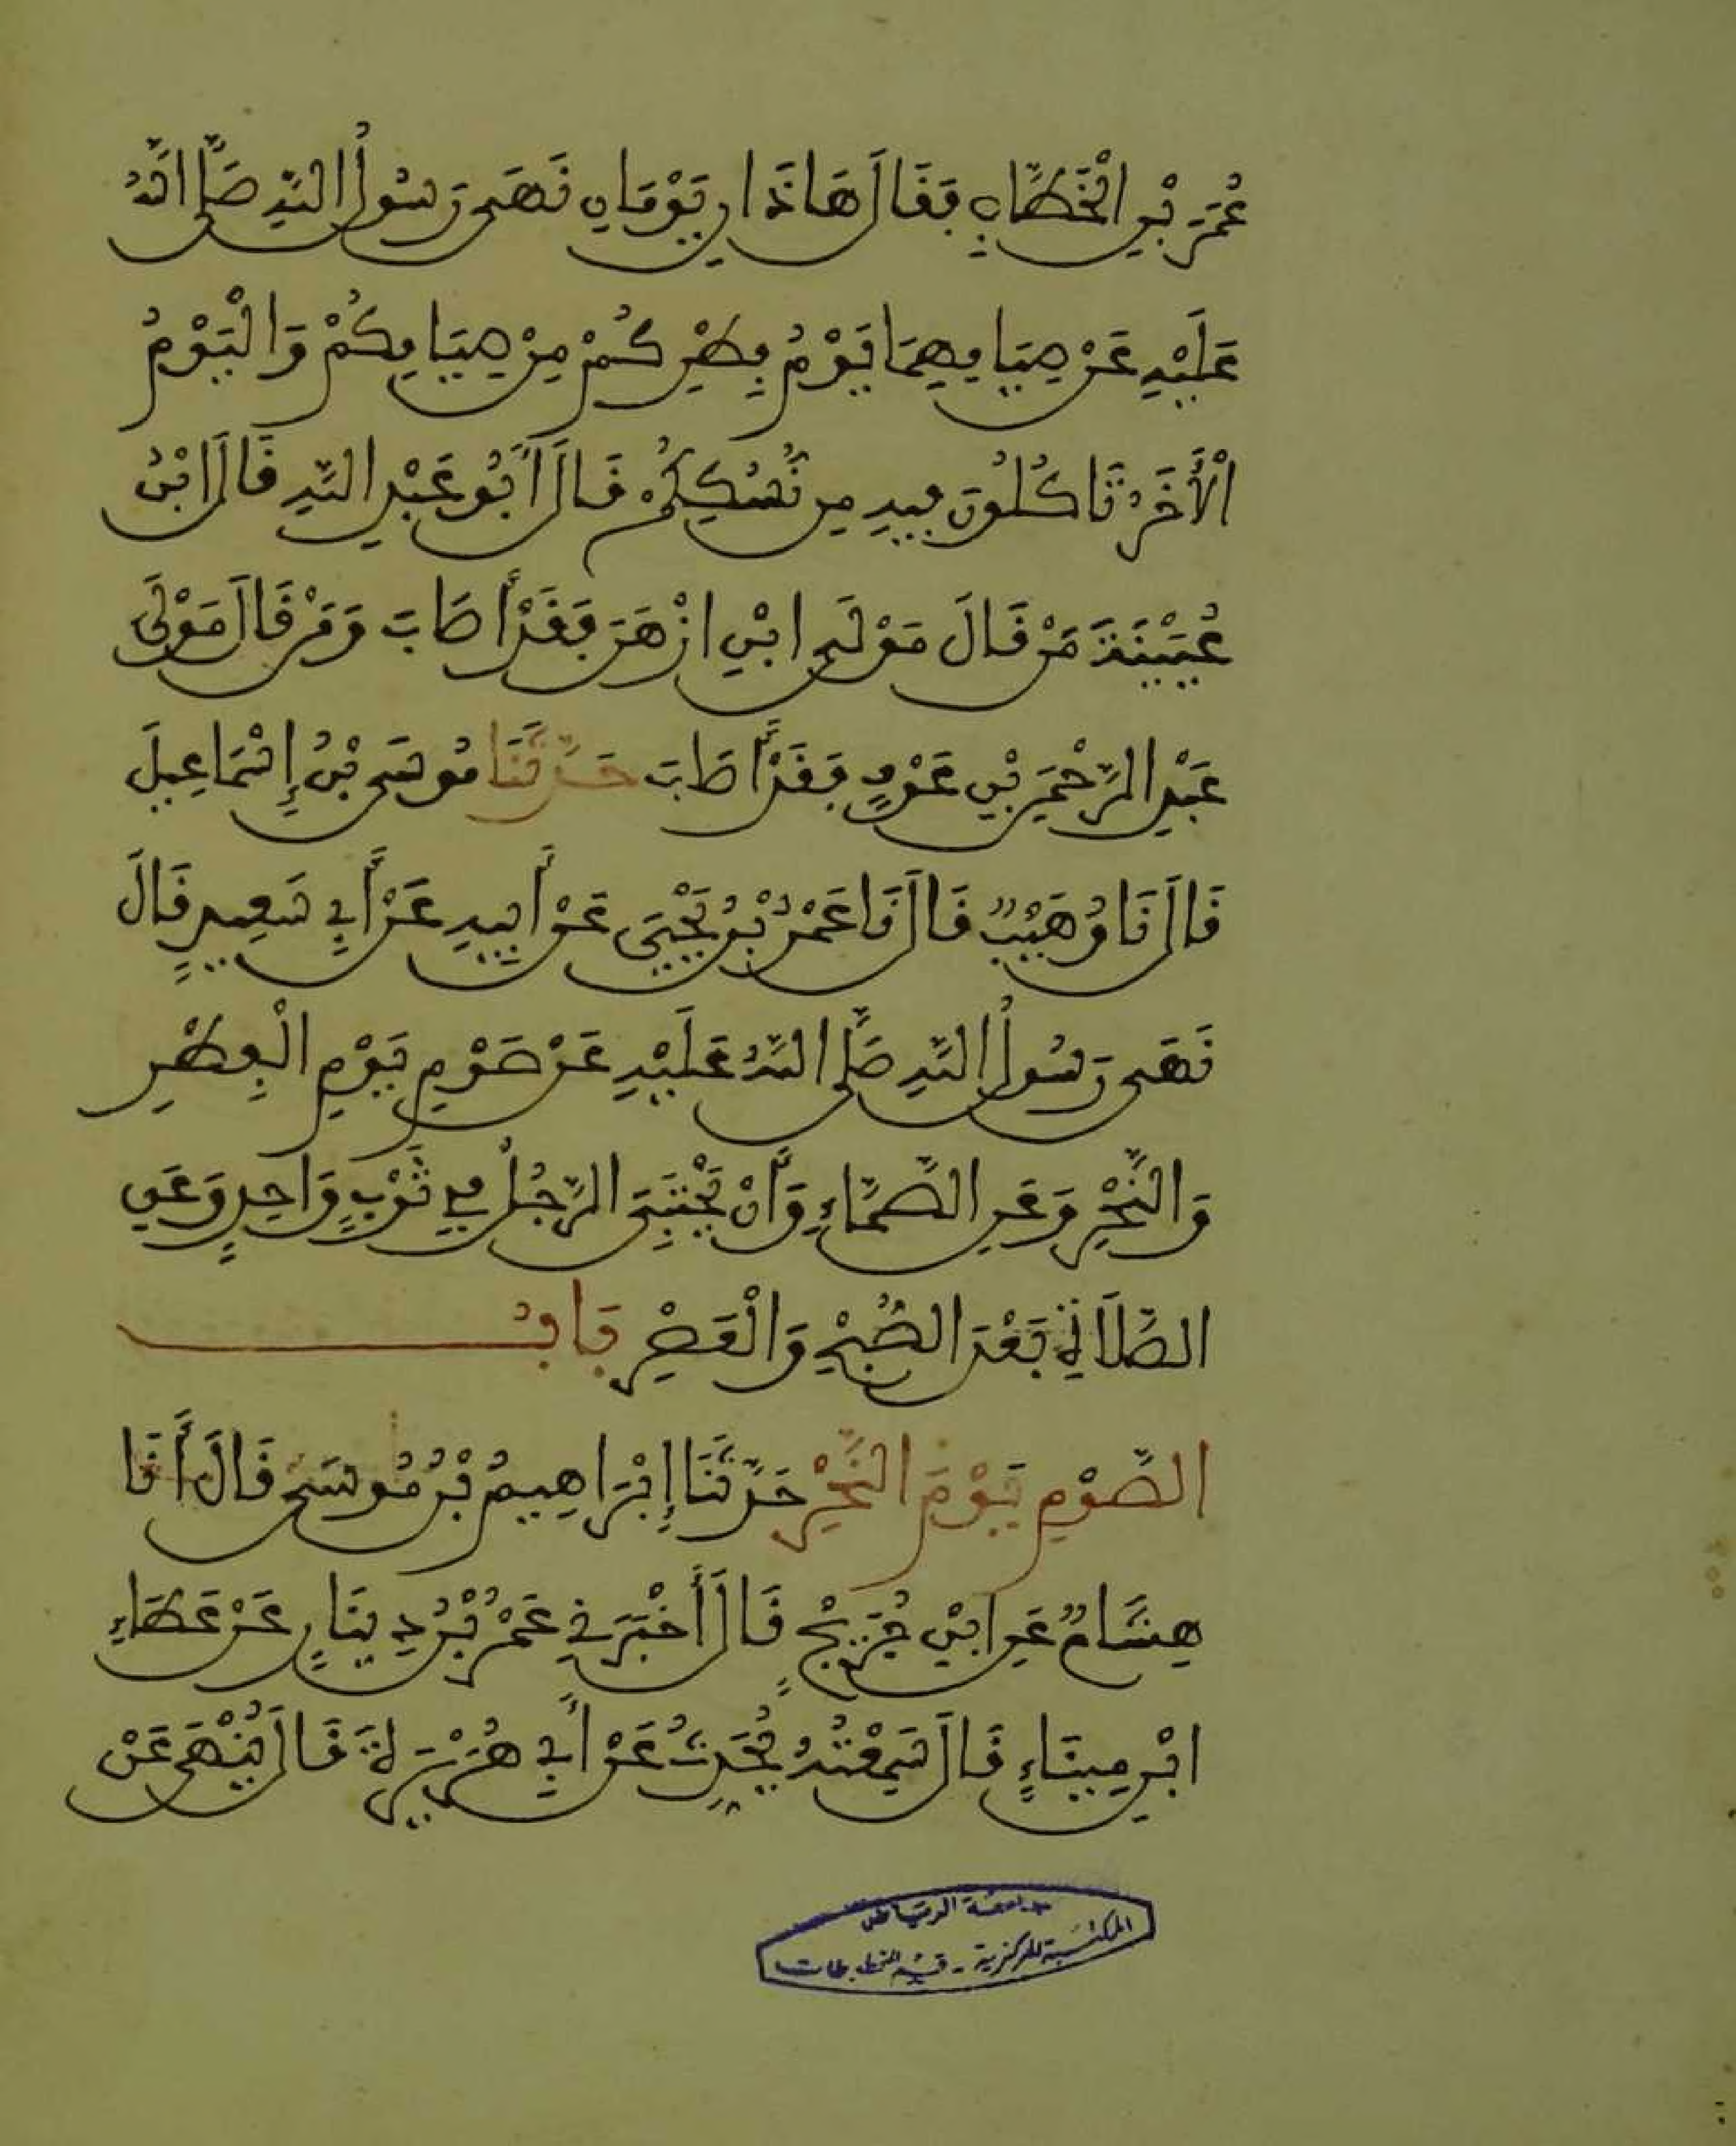 عُمَرَ بْنِ الْخَطَّابِ فَقَالَ هَاذَانِ يَوْمَانِ نَهَى رَسُولُ اللَّهِ صَلَّى اللَّهُ
عَلَيْهِ عَنْ صِيَامِهِمَا يَوْمُ فِطْرِكُمْ مِنْ صِيَامِكُمْ وَالْيَوْمُ
الْأَخَرُ تَاكُلُونَ فِيهِ مِن نُسُكِكُمْ قَالَ أَبُو عَبْدِ اللَّهِ قَالَ ابْنُ
عُيَيْنَةَ مَنْ قَالَ مَوْلَى ابْنِ ازْهَرَ فَقَدْ أَصَابَ وَمَنْ قَالَ مَوْلَى
عَبْدِ الرَّحْمَنِ بْنِ عَوْفٍ فَقَدْ أَصَابَ حَدَّثَنَا مُوسَى بْنُ إِسْمَاعِيلَ
قَالَ نَا وُهَيْبٌ قَالَ نَا عَمْرُ بْنُ يَحْيَى عَنْ أَبِيهِ عَنْ أَبِي سَعِيدٍ قَالَ
نَهَى رَسُولُ اللَّهِ صَلَّى اللَّهُ عَلَيْهِ عَنْ صَوْمِ يَوْمِ الْفِطْرِ
وَالنَّحْرِ وَعَنِ الصَّمَّاءِ وَأَنْ يَحْتَبِيَ الرَّجُلُ فِي ثَوْبٍ وَاحِدٍ وَعَنِ
الصَّلَاةِ بَعْدَ الصُّبْحِ وَالْعَصْرِ بَابُ
الصَّوْمِ يَوْمَ النَّحْرِ حَدَّثَنَا إِبْرَاهِيمُ بْنُ مُوسَى قَالَ أَنَا
هِشَامٌ عَنِ ابْنِ جُرَيْجٍ قَالَ أَخْبَرَنِي عَمْرُ بْنُ دِينَارٍ عَنْ عَطَاءِ
ابْنِ مِينَاءٍ قَالَ سَمِعْتُهُ يُحَدِثُ عَنْ أَبِي هُرَيْرَةَ قَالَ يُنْهَى عَنْ
جامعة الرياض
المكتبة المركزية - قسم المخطوطات